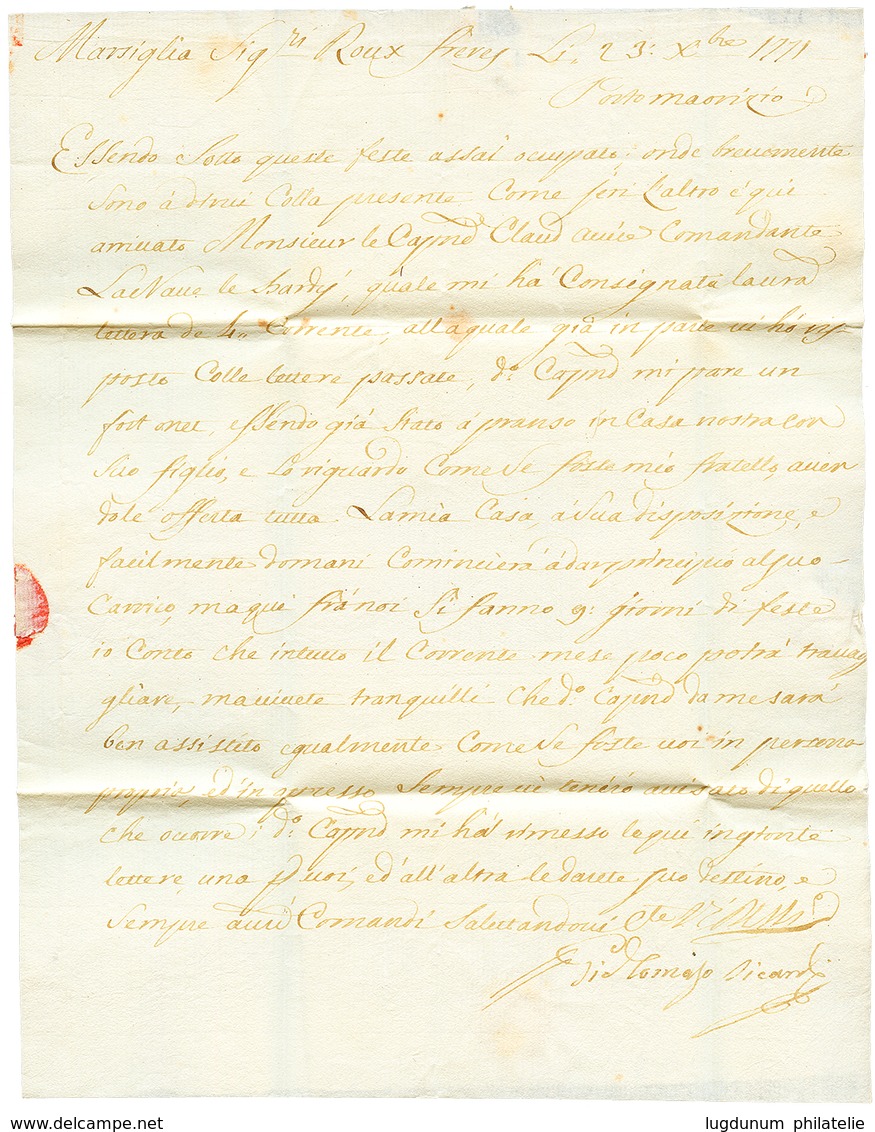 Marsiglia Sig.ri Roux freres Li. 23: Xbre 1771
Porto maorizio
Essendo Sotto queste feste assai ocupato; onde brevemente
Sono á dirui Colla presente Come jeri l'altro é qui
arriuato Monsieur le Capnd Claud Comandante
La Naue le hardÿ, quale mi há Consignata la urã
lettera de 4,, Corrente, alla quale giá in parte ui hó ris
posto Colle lettere passate, do. Capnd mi pare un
fort onet, essendo giá Stato á pranso in Casa nostra con
Suo figlio, e Lo riguardo Come Se fosse mio fratello, auen
dole offerta tutta La mia Casa, á Sua disposizione, e
facilmente domani Comincierá á dar principio al Suo
Carrico, ma qui frá noi Si fanno 9: giorni di feste
io Conto che in tutto il Corrente mese poco potrá trauag
gliare, ma uiuete tranquilli che do. Capnd da me sará
ben assistito egualmente Come Se foste uoi in persona
proprio, ed in apresso Sempre ui teneró auisato di quello
che ocorre; do. Capnd mi há rimesso le qui ingionte
lettere, una p uoi, ed all'altra le darete suo destino, e
Sempre Comandi Salutandoui
Tomaso Ricardi
www.delcampe.net lugdunum philatelie